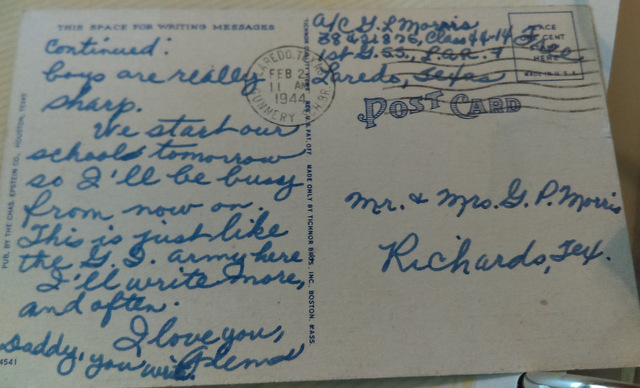 THIS SPACE FOR WRITING MESSAGES
Continued:
boys are really
sharp.
We start our
school tomorrow
so I'll be busy
from now on.
This is just like
the G.I. army here
I'll write more,
and often.
I love you,
Daddy, you win. Glenn
4541
PUB. BY THE CHAS. EPSTEIN CO., HOUSTON, TEXAS
MADE ONLY BY TICHNOR BROS., INC., BOSTON, MASS.
A/C G. L Morris
38421876, Class 44-14
1st G.S.S., L.A.A.F
Laredo, Texas
Free
PLACE
CENT
HERE
MADE IN U.S.A.
LAREDO, TEXAS
FEB 2
11 AM
1944
GUNNERY SCH. BR.
POST CARD
Mr. & Mrs. G. P. Morris
Richards, Tex.